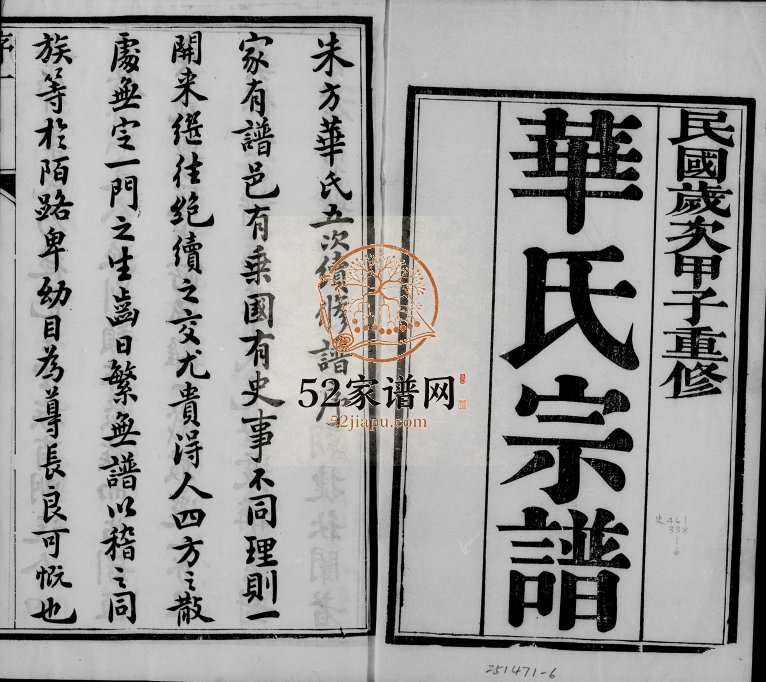 民國歲次甲子重修
華氏宗譜
史461
338
1
6
251471-6
朱方華氏五次續修譜序
家有譜邑有乗國有史事不同理則一
開来繼往絶續之交尤貴淂人四方之散
處無定一門之生齒日繁無譜以稽之同
族等於陌路卑幼目為尊長良可慨也
序一
52家谱网
52jiapu.com